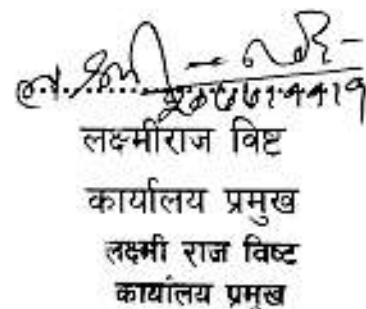 लक्ष्मीराज विष्ट
कार्यालय प्रमुख
लक्ष्मी राज विष्ट
कार्यालय प्रमुख